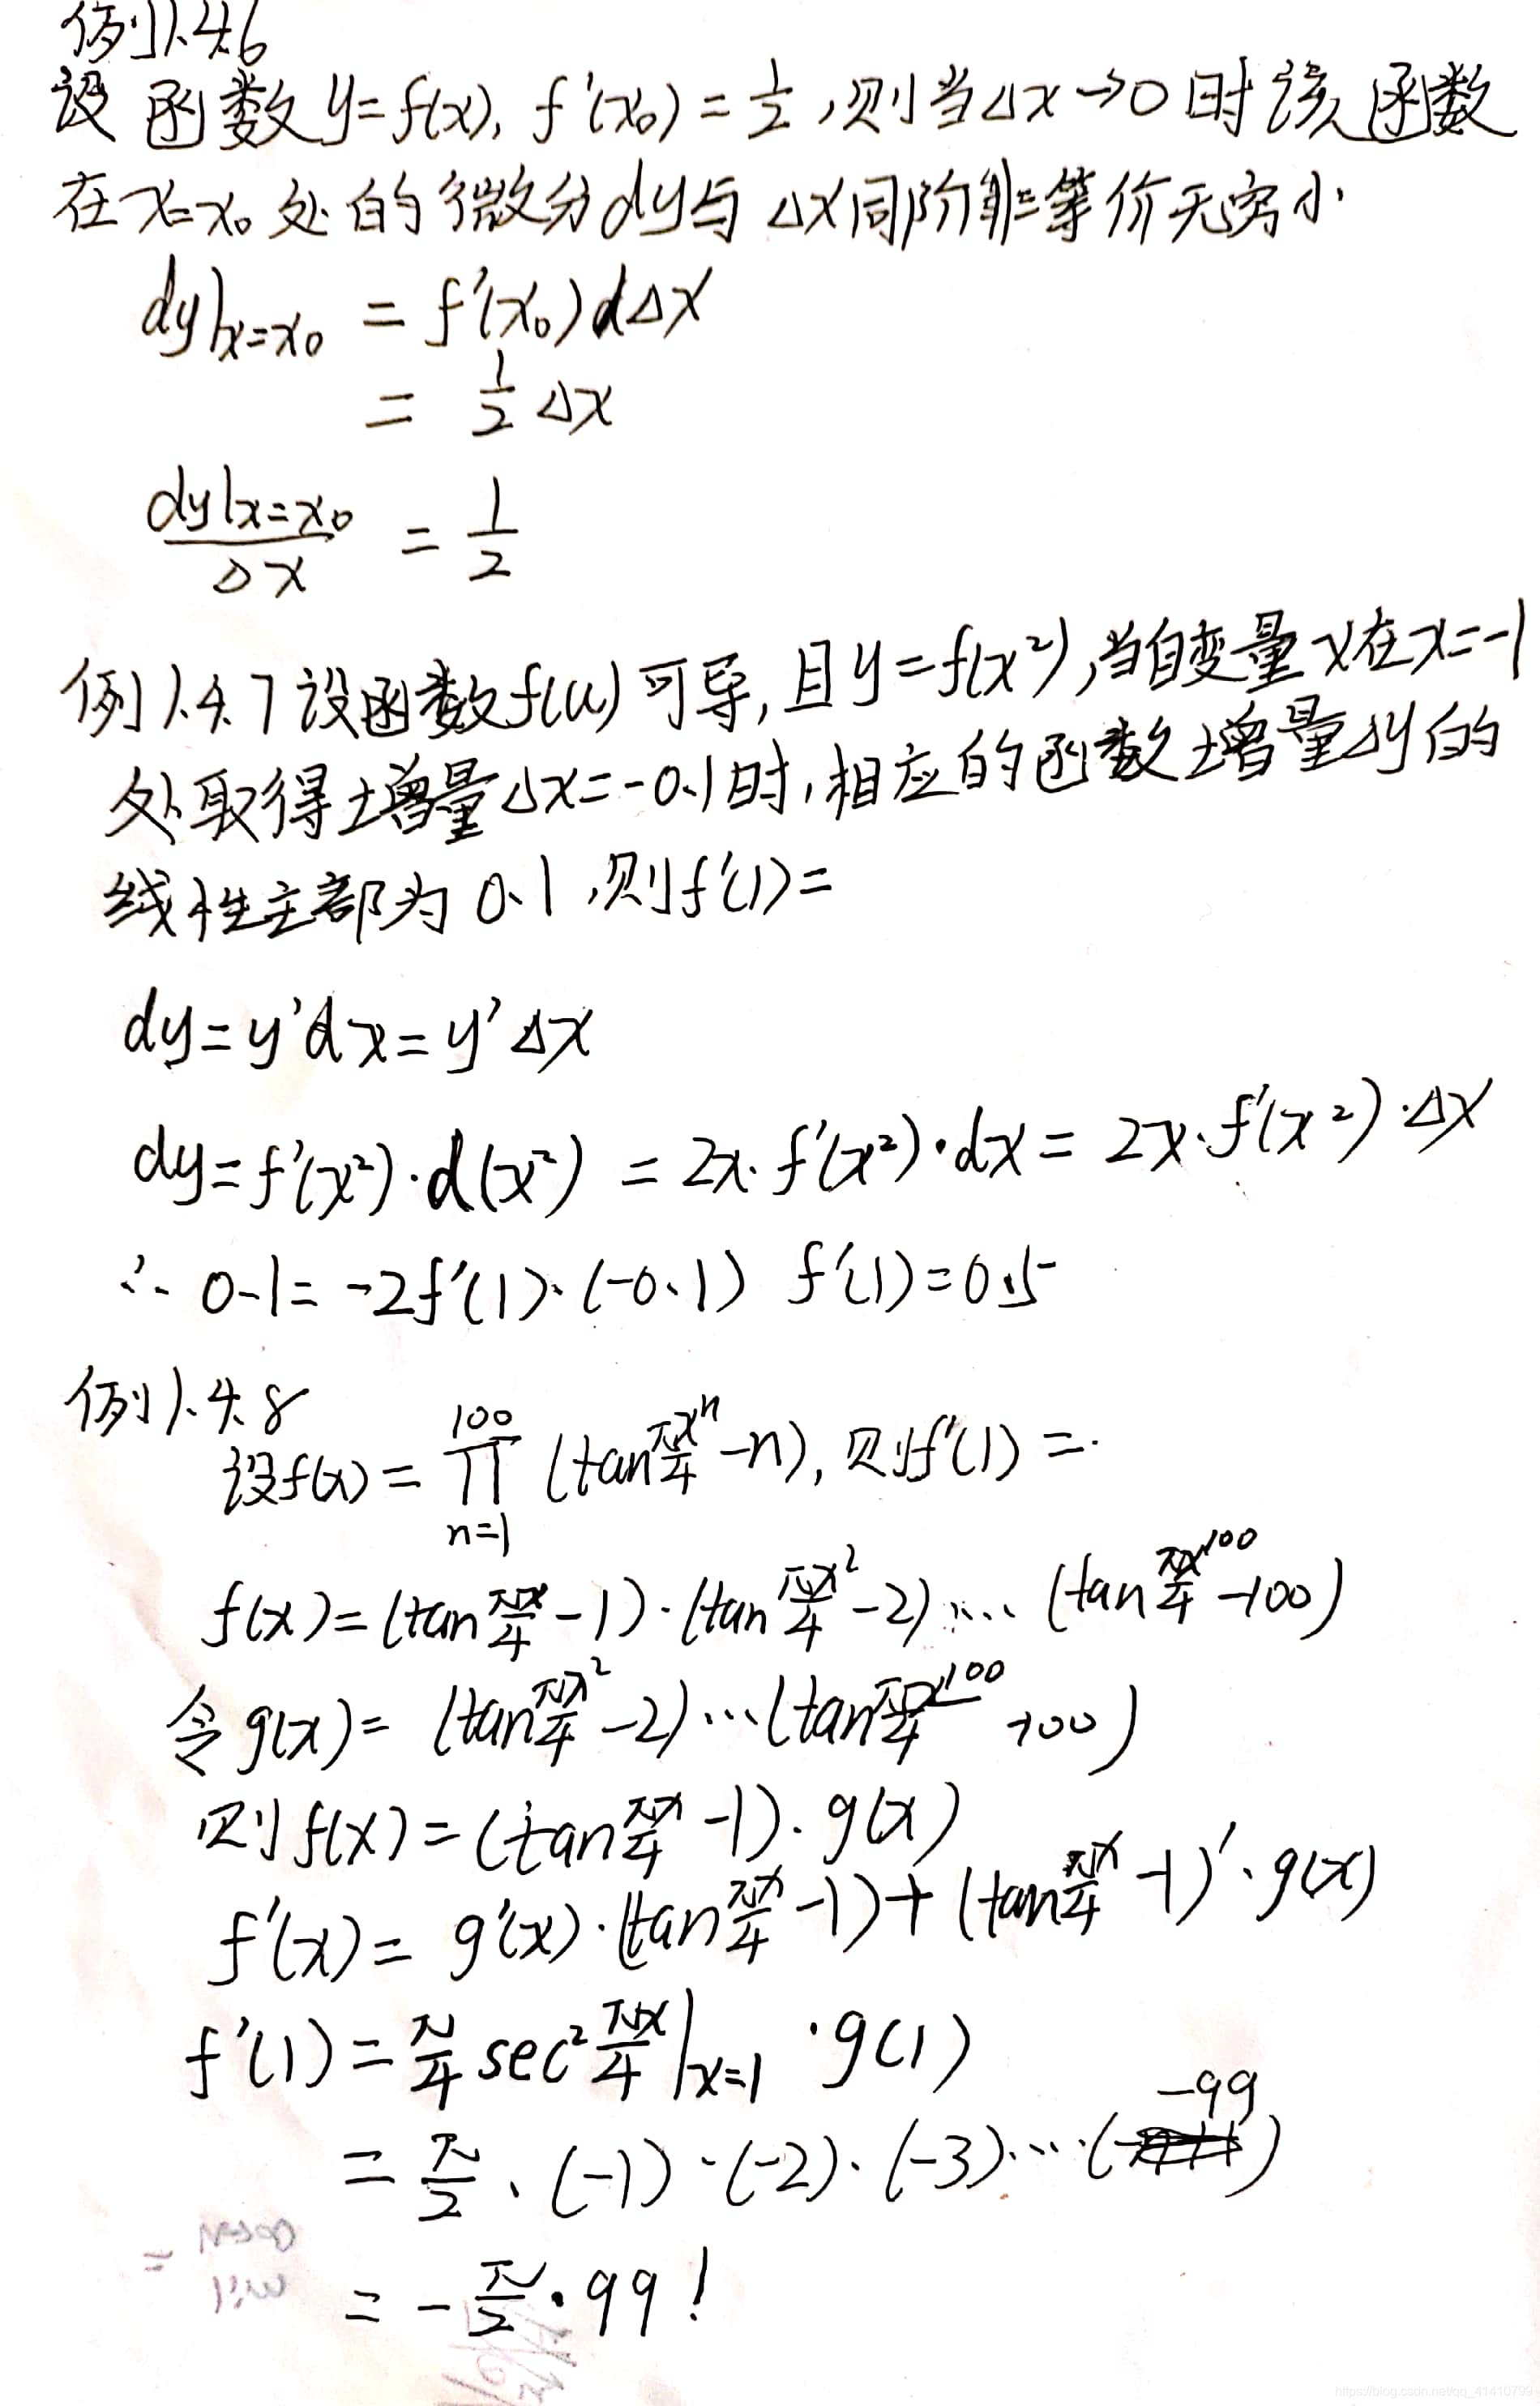 例1.4.6
设函数y=f(x), f'(x₀)=1/2,则当Δx→0时该函数
在x=x₀处的微分dy与Δx同阶非等价无穷小
dy|x=x₀ = f'(x₀)dΔx
= 1/2 Δx
dy|x=x₀ / Δx = 1/2
例1.4.7 设函数f(u)可导,且y=f(x²),当自变量x在x=-1
处取得增量Δx=-0.1时,相应的函数增量Δy的
线性主部为0.1,则f'(1)=
dy=y'dx=y'Δx
dy=f'(x²)·d(x²) = 2x·f'(x²)·dx = 2x·f'(x²)·Δx
∴ 0.1=-2f'(1)·(-0.1) f'(1)=0.5
例1.4.8
设f(x)=∏_{n=1}^{100}(tan πxⁿ/4 -n), 则f'(1)=
f(x)=(tan πx/4 -1)·(tan πx²/4 -2)…(tan πx¹⁰⁰/4 -100)
令g(x)=(tan πx²/4 -2)…(tan πx¹⁰⁰/4 -100)
则f(x)=(tan πx/4 -1)·g(x)
f'(x)=g'(x)·(tan πx/4 -1)+(tan πx/4 -1)'·g(x)
f'(1)=π/4 sec² πx/4 |x=1 ·g(1)
=π/2·(-1)·(-2)·(-3)…(-99)
=-π/2·99!
https://blog.csdn.net/qq_41410799